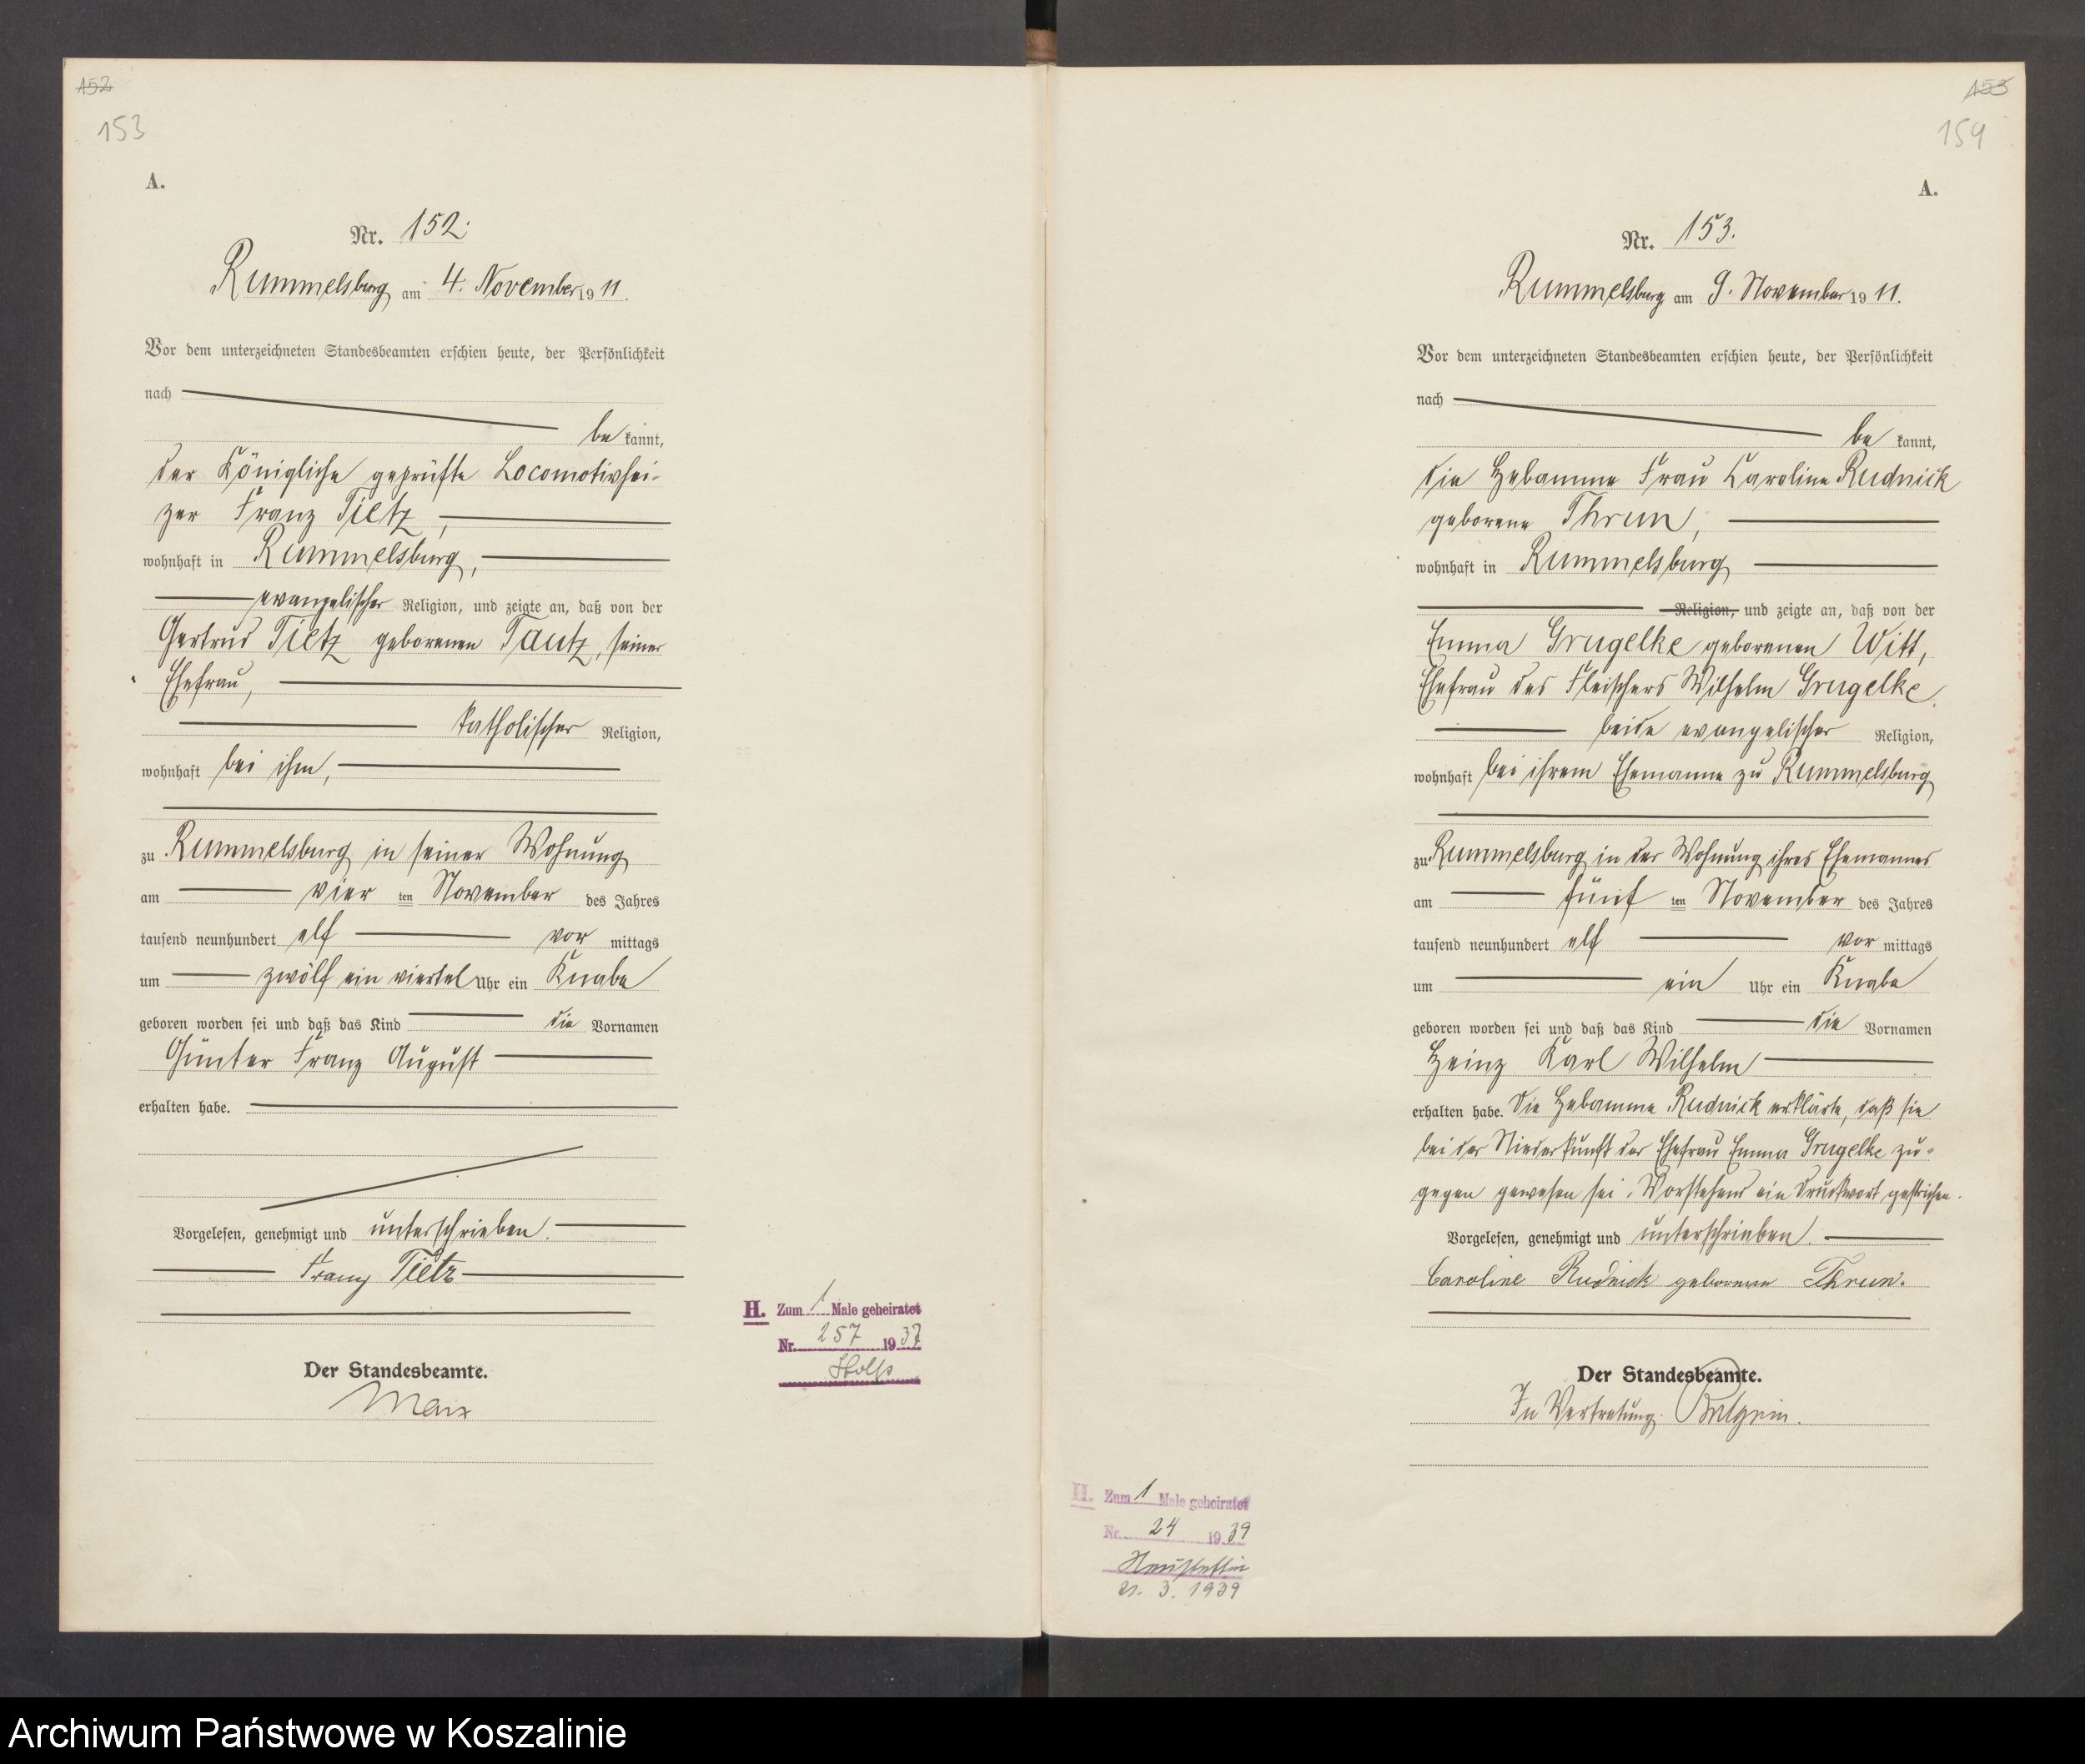 152
153
A.
Nr. 152.
Rummelsburg am 4. November 1911.
Vor dem unterzeichneten Standesbeamten erschien heute, der Persönlichkeit
nach
be kannt,
der Königliche geprüfte Locomotivhei-
zer Franz Tietz,
wohnhaft in Rummelsburg,
evangelischer Religion, und zeigte an, daß von der
Gertrud Tietz geborenen Tautz, seiner
Ehefrau,
katholischer Religion,
wohnhaft bei ihm,
zu Rummelsburg in seiner Wohnung
am vier ten November des Jahres
tausend neunhundert elf vor mittags
um zwölf ein viertel Uhr ein Knabe
geboren worden sei und daß das Kind die Vornamen
Günter Franz August
erhalten habe.
Vorgelesen, genehmigt und unterschrieben.
Franz Tietz
Der Standesbeamte.
Marx
H. Zum 1 Male geheiratet
Nr. 257 1937
153
154
A.
Nr. 153.
Rummelsburg am 9. November 1911.
Vor dem unterzeichneten Standesbeamten erschien heute, der Persönlichkeit
nach
be kannt,
die Hebamme Frau Caroline Rudnick
geborene Thrun,
wohnhaft in Rummelsburg
Religion, und zeigte an, daß von der
Emma Grugelke geborenen Witt,
Ehefrau des Fleischers Wilhelm Grugelke,
beide evangelischer Religion,
wohnhaft bei ihrem Ehemanne zu Rummelsburg
zu Rummelsburg in der Wohnung ihres Ehemannes
am fünf ten November des Jahres
tausend neunhundert elf vor mittags
um ein Uhr ein Knabe
geboren worden sei und daß das Kind die Vornamen
Heinz Karl Wilhelm
erhalten habe. Die Hebamme Rudnick erklärte, daß sie
bei der Niederkunft der Ehefrau Emma Grugelke zu-
gegen gewesen sei. Vorstehend ein Druckwort gestrichen.
Vorgelesen, genehmigt und unterschrieben.
Caroline Rudnick geborene Thrun.
Der Standesbeamte.
In Vertretung.
H. Zum 1 Male geheiratet
Nr. 24 1939
Neustettin
21. 3. 1939
Archiwum Państwowe w Koszalinie